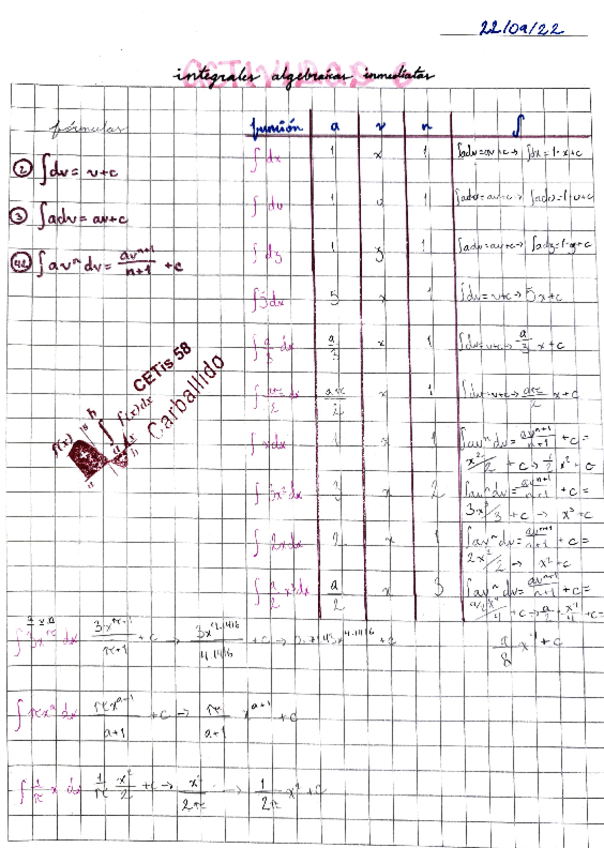 22/09/22
ACTIVIDAD 6
integrales algebraicas inmediatas
fórmulas
② ∫dv = v+c
③ ∫adv = av+c
∫avⁿdv = avⁿ⁺¹/n+1 + c
función a v n ∫
∫dx 1 x 1 ∫adv=av+c→ ∫dx=1·x+c
∫dv 1 v 1 ∫adv=av+c→ ∫adv=1·v+c
∫dy 1 y 1 ∫adv=av+c→ ∫ady=1·y+c
∫5dx 5 x 1 ∫dv=v+c→5x+c
∫a/3 dx a/3 x 1 ∫dv=v+c→ a/3 x+c
x 1 ∫dv=v+c→ x+c
∫xdx 1 x 1 ∫avⁿdv= avⁿ⁺¹/n+1 +c=
x²/2 +c→ 1/2 x²+c
∫3x²dx 3 x 2 ∫avⁿdv= avⁿ⁺¹/n+1 +c=
3x³/3 +c → x³+c
∫2xdx 2 x 1 ∫avⁿdv= avⁿ⁺¹/n+1 +c=
2x²/2 → x²+c
∫a/2 x³dx a/2 x 3 ∫avⁿdv= avⁿ⁺¹/n+1 +c=
a/8 x⁴+c
CETis 58
Carballido
f(x)
∫f(x)dx
∫3x^π dx 3x^π+1/π+1 +c → 3x^4.1416/4.1416 +c →
∫πxᵃdx πxᵃ⁺¹/a+1 +c → π/a+1 xᵃ⁺¹ +c
∫1/π x dx 1/π x²/2 +c → x²/2π → 1/2π x²+c